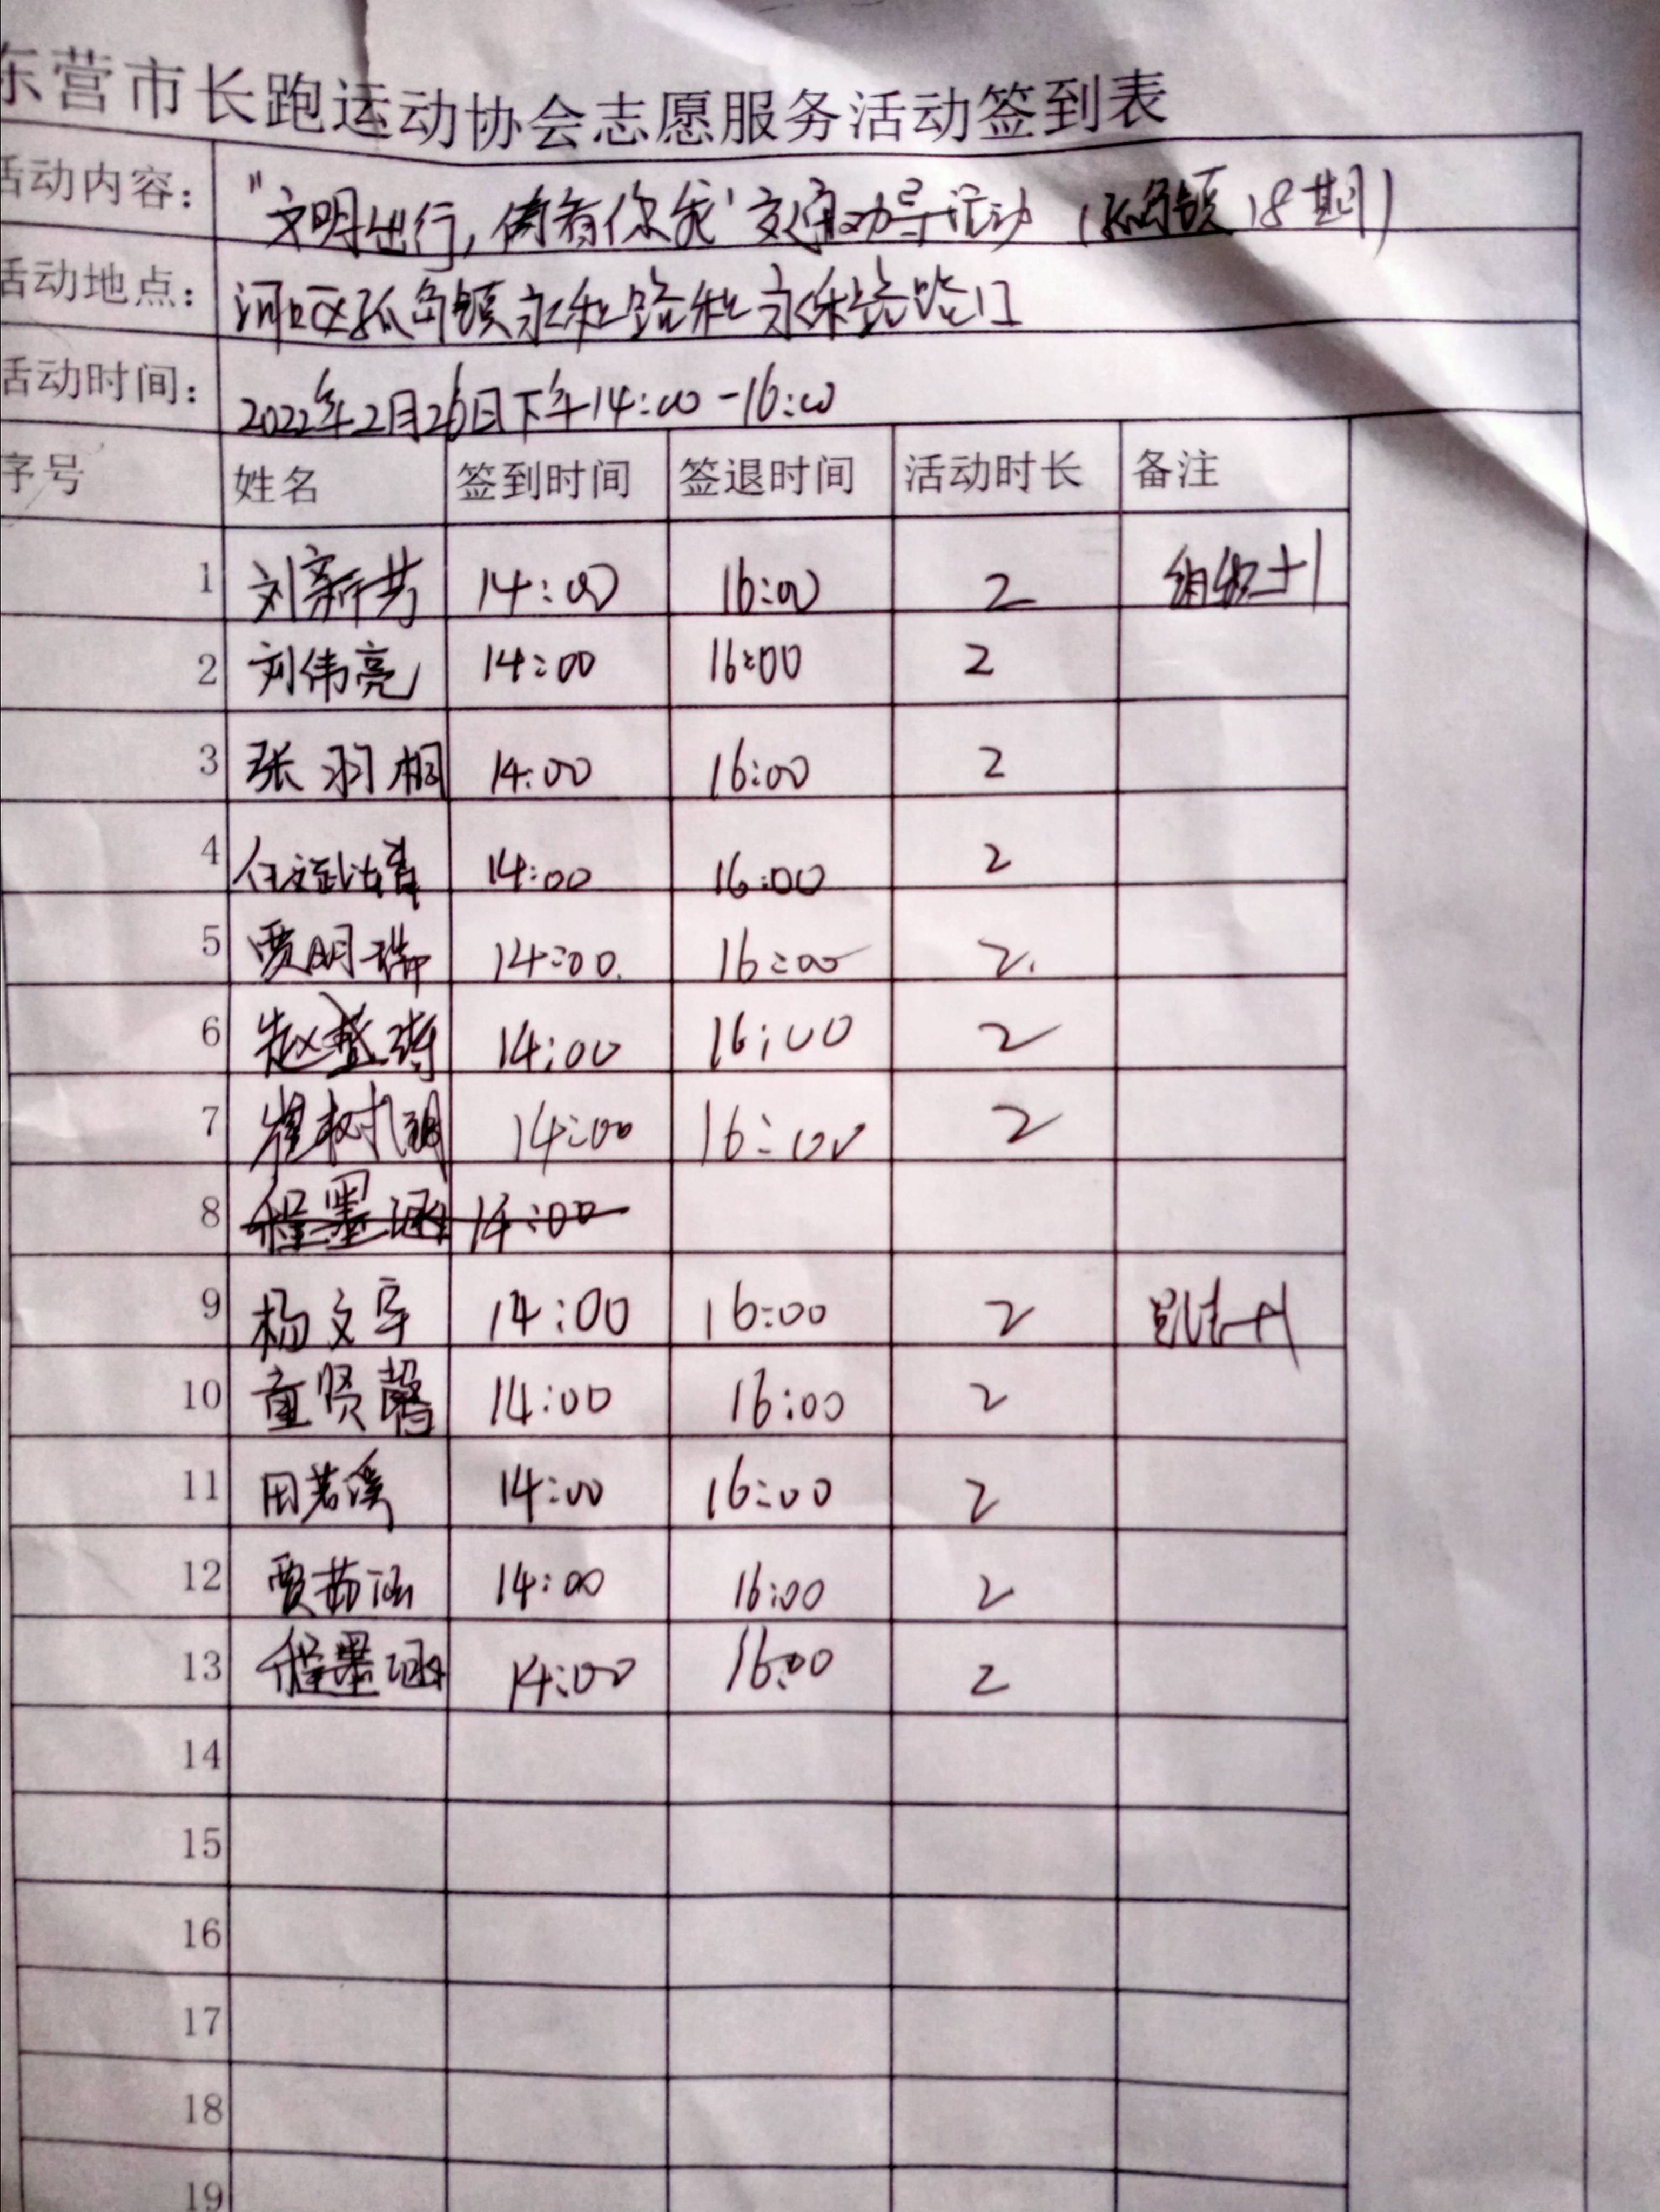 东营市长跑运动协会志愿服务活动签到表
活动内容： "文明出行，倚着你我"交通劝导活动（孤岛镇18期）
活动地点： 河口区孤岛镇永和路和永保路路口
活动时间： 2022年2月26日下午14:00-16:00
序号 姓名 签到时间 签退时间 活动时长 备注
1 刘新芳 14:00 16:00 2 组织+1
2 刘伟亮 14:00 16:00 2
3 张羽桐 14:00 16:00 2
4 14:00 16:00 2
5 贾明瑞 14:00. 16:00 2.
6 赵 14:00 16:00 2
7 崔树 14:00 16:00 2
8 程墨涵 14:00
9 杨文宇 14:00 16:00 2 +1
10 童贤馨 14:00 16:00 2
11 田若溪 14:00 16:00 2
12 贾茹涵 14:00 16:00 2
13 程墨涵 14:00 16:00 2
14
15
16
17
18
19